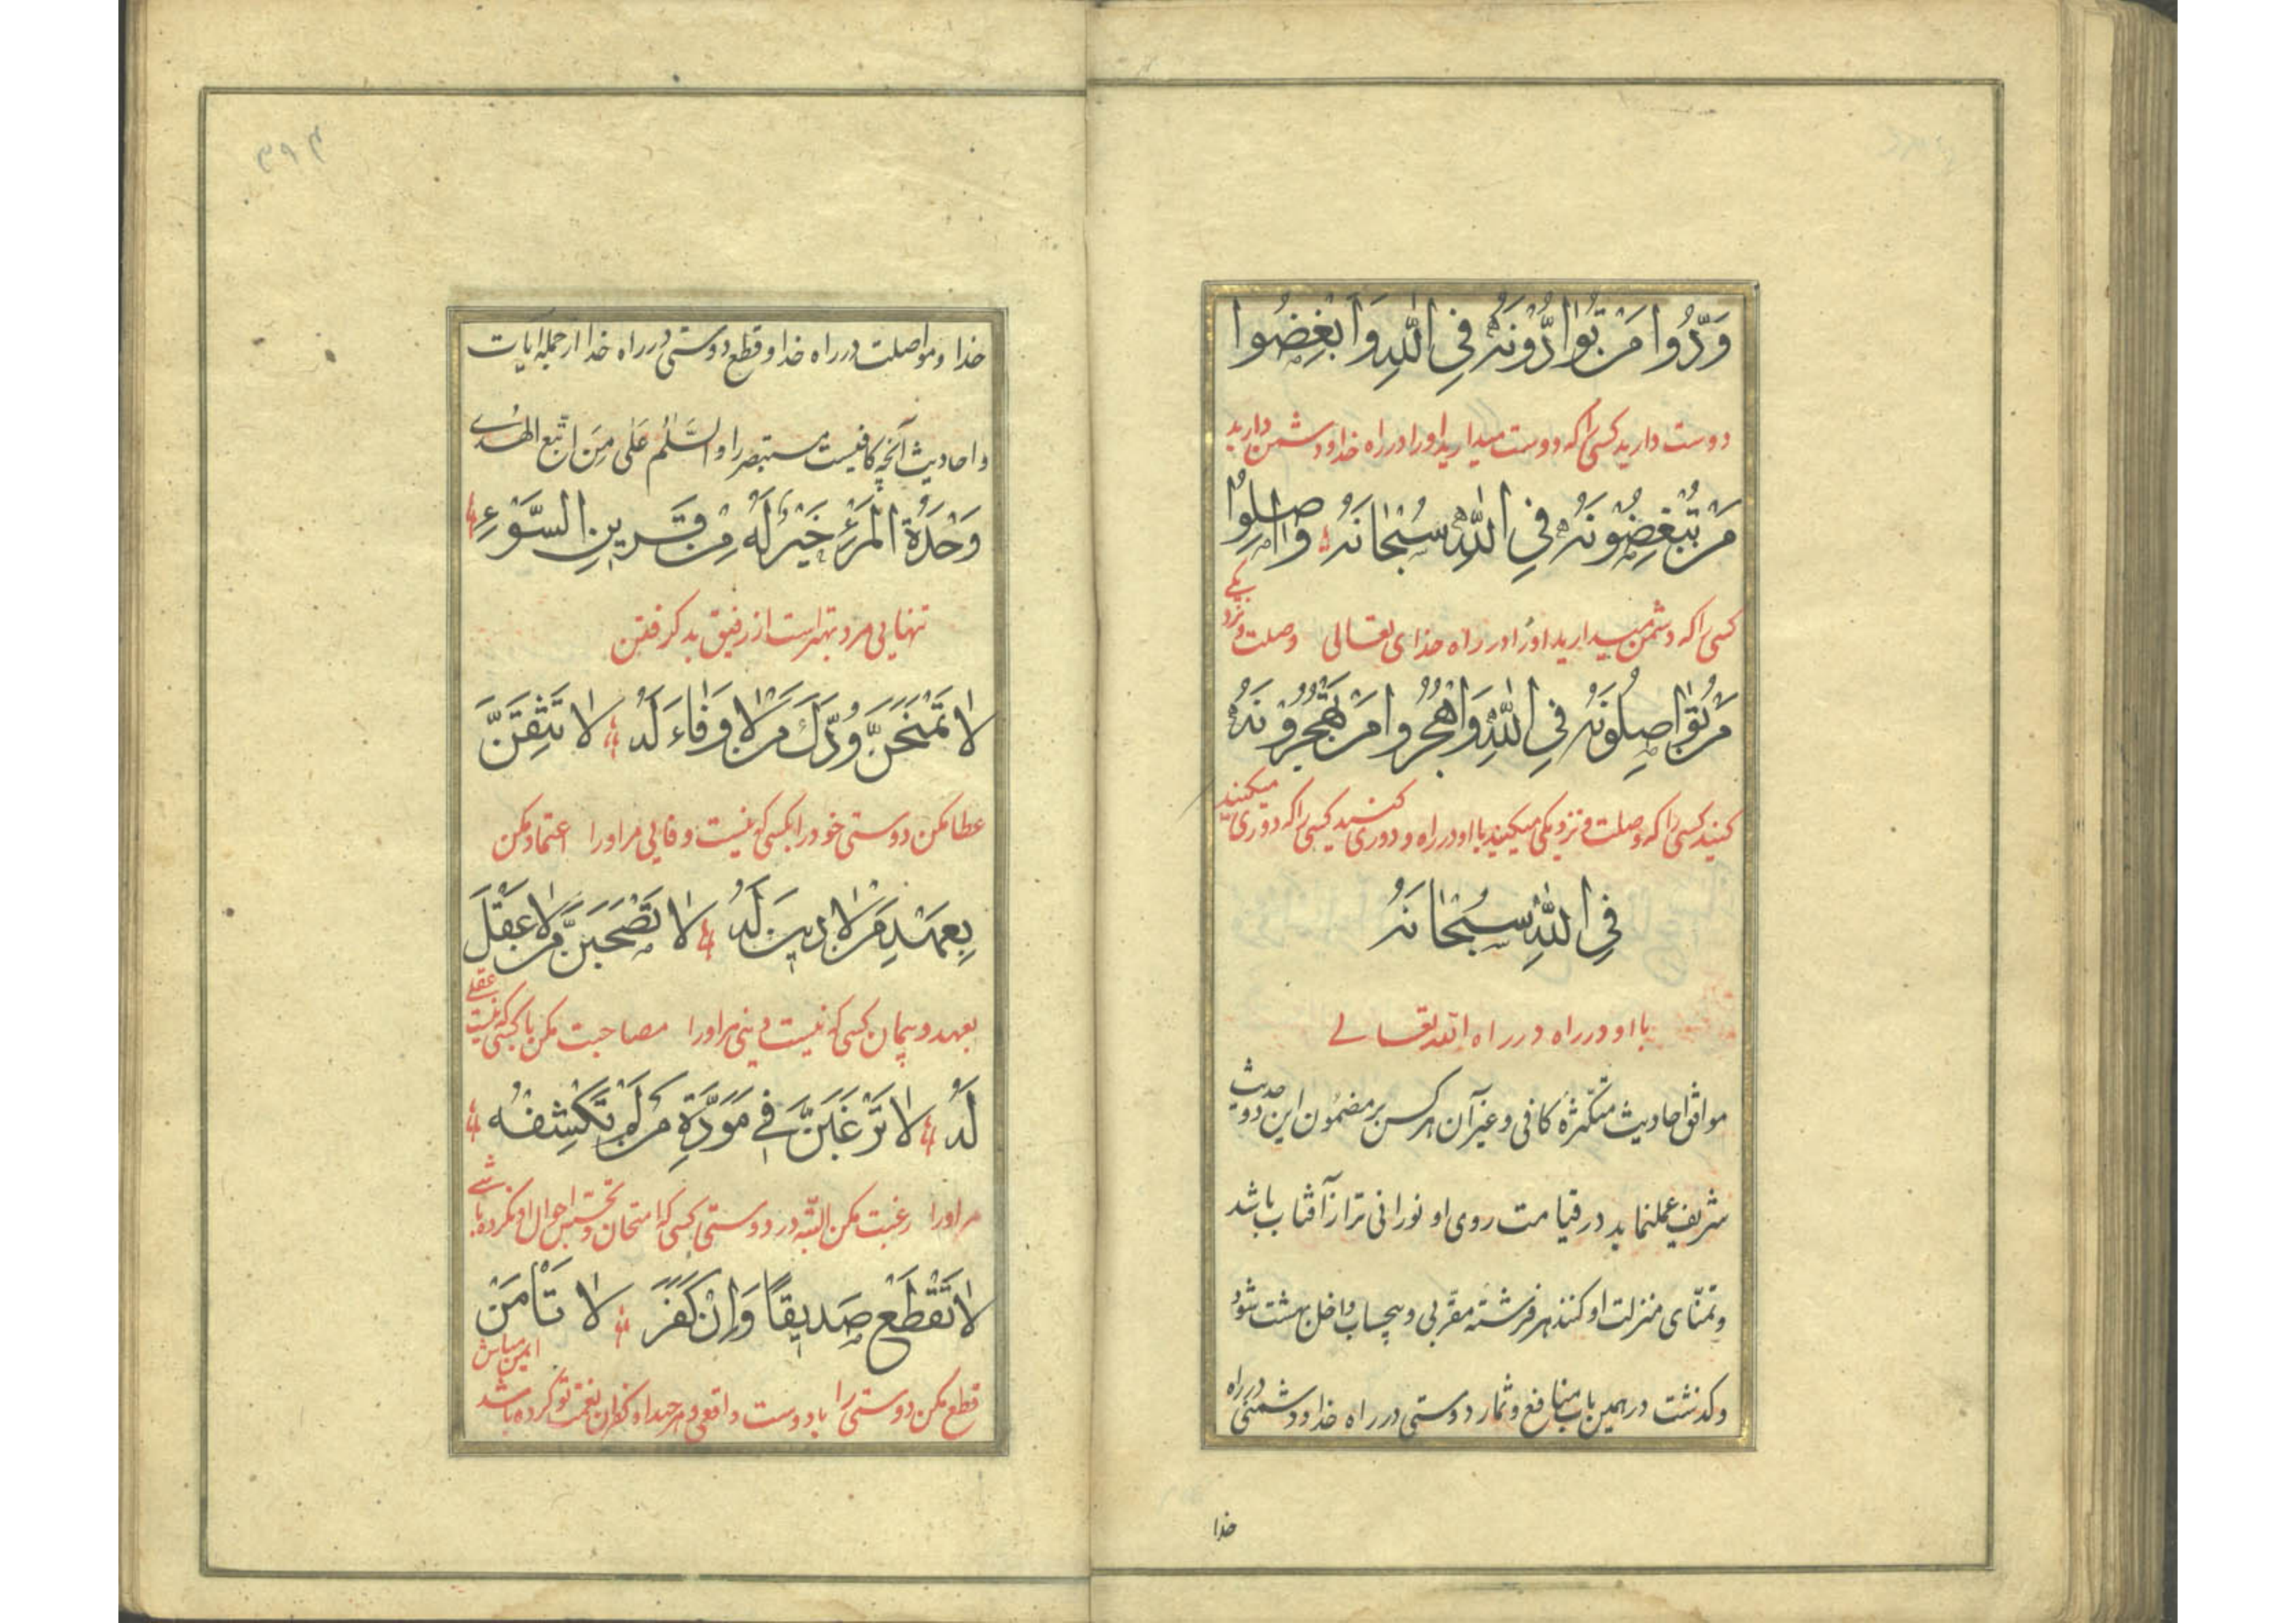 وَدُّوا مَنْ تُوٰادُّونَهُ فِي اللّٰهِ وَاَبْغِضُوا
دوست دارید کسی را که دوست میدارید او را در راه خدا و دشمن دارید
مَنْ تُبْغِضُونَهُ فِي اللّٰهِ سُبْحٰانَهُ وَاصِلُوا
کسی را که دشمن میدارید او را در راه خدای تعالی وصلت و نزدیکی
مَنْ تُوٰاصِلُونَهُ فِي اللّٰهِ وَاهْجُرُوا مَنْ تَهْجُرُونَهُ
کنید کسی را که وصلت و نزدیکی میکنید با او در راه و دوری کنید کسی را که دوری میکنید
فِي اللّٰهِ سُبْحٰانَهُ
با او در راه در راه الله تعالی
موافق احادیث متکثرهٔ کافی و غیر آن هر کس بر مضمون این دو حدیث
شریف عملنماید در قیامت روی او نورانی تر از آفتاب باشد
و تمنّای منزلت او کنند هر فرشتهٔ مقرّبی و بیحساب داخل بهشت شود
و کذشت در همین باب منافع و ثمار دوستی در راه خدا و دشمنی در راه
خدا
خدا و مواصلت در راه خدا و قطع دوستی در راه خدا از جمله ایات
و احادیث آنچه کافیست مستبصر را و السَّلٰمُ عَلٰی مَنِ اتّبع الهُدی
وَحْدَةُ الْمَرْءِ خَيْرٌ لَهُ مِنْ قَرينِ السَّوْءِ
تنهایی مرد بهتر است از رفیق بد کرفتن
لٰا تَمْنَحَنَّ وُدَّكَ مَنْ لٰا وَفٰاءَ لَهُ لٰا تَثِقَنَّ
عطا مکن دوستی خود را بکسی که نیست وفایی مر او را اعتماد مکن
بِعَهْدِ مَنْ لٰا دينَ لَهُ لٰا تَصْحَبَنَّ مَنْ لٰا عَقْلَ
بعهد و پیمان کسی که نیست دینی مر او را مصاحبت مکن با کسی که نیست عقلی
لَهُ لٰا تَرْغَبَنَّ في مَوَدَّةِ مَنْ لَمْ تَكْشِفْهُ
مر او را رغبت مکن البتّه در دوستی کسی که امتحان و تجسّس احوال او نکرده باشی
لٰا تَقْطَعْ صَديقاً وَاِنْ كَفَرَ لٰا تَأْمَنْ
قطع مکن دوستی را با دوست واقعی و هر چند او کفران نعمت تو کرده باشد ایمن مباش